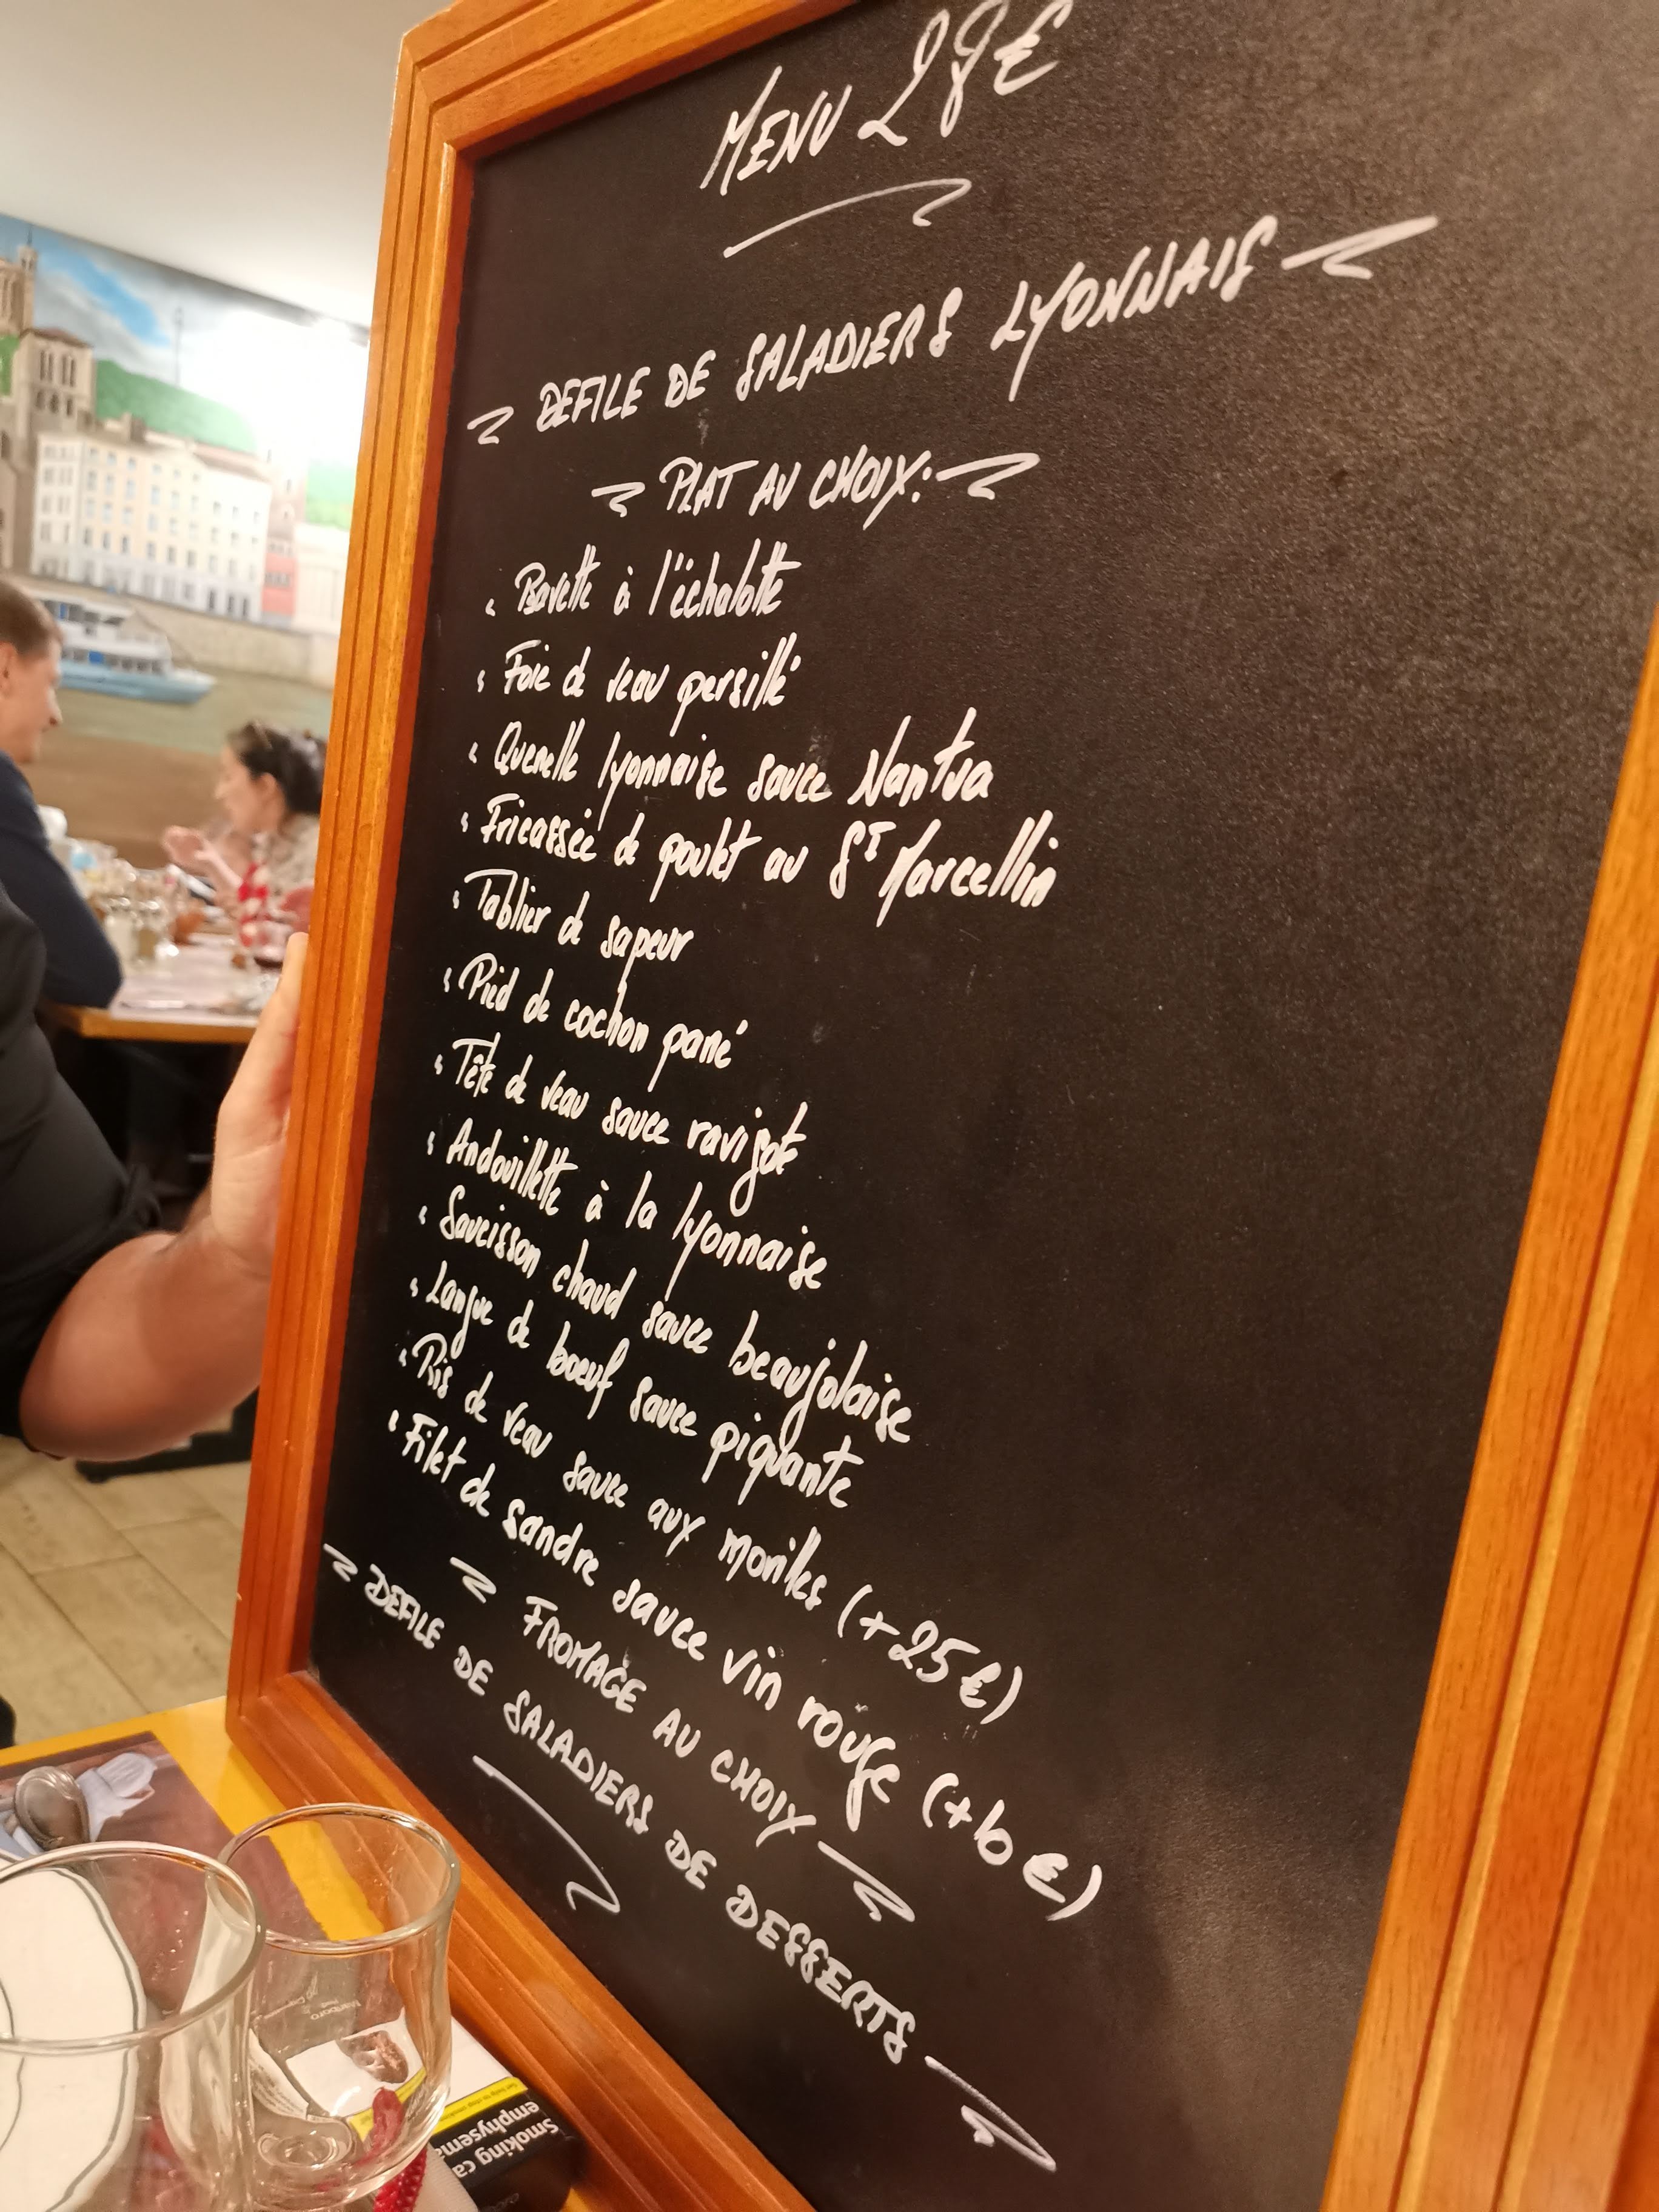 MENU 28€
DEFILE DE SALADIERS LYONNAIS
PLAT AU CHOIX:
Bavette à l'échalotte
Foie de veau persillé
Quenelle lyonnaise sauce Nantua
Fricassée de poulet au ST Marcellin
Tablier de sapeur
Pied de cochon pané
Tête de veau sauce ravigote
Andouillette à la lyonnaise
Saucisson chaud sauce beaujolaise
Langue de boeuf sauce piquante
Ris de veau sauce aux morilles (+25€)
Filet de sandre sauce vin rouge (+6€)
FROMAGE AU CHOIX
DEFILE DE SALADIERS DE DESSERTS
Marlboro
Smoking ca
emphysema